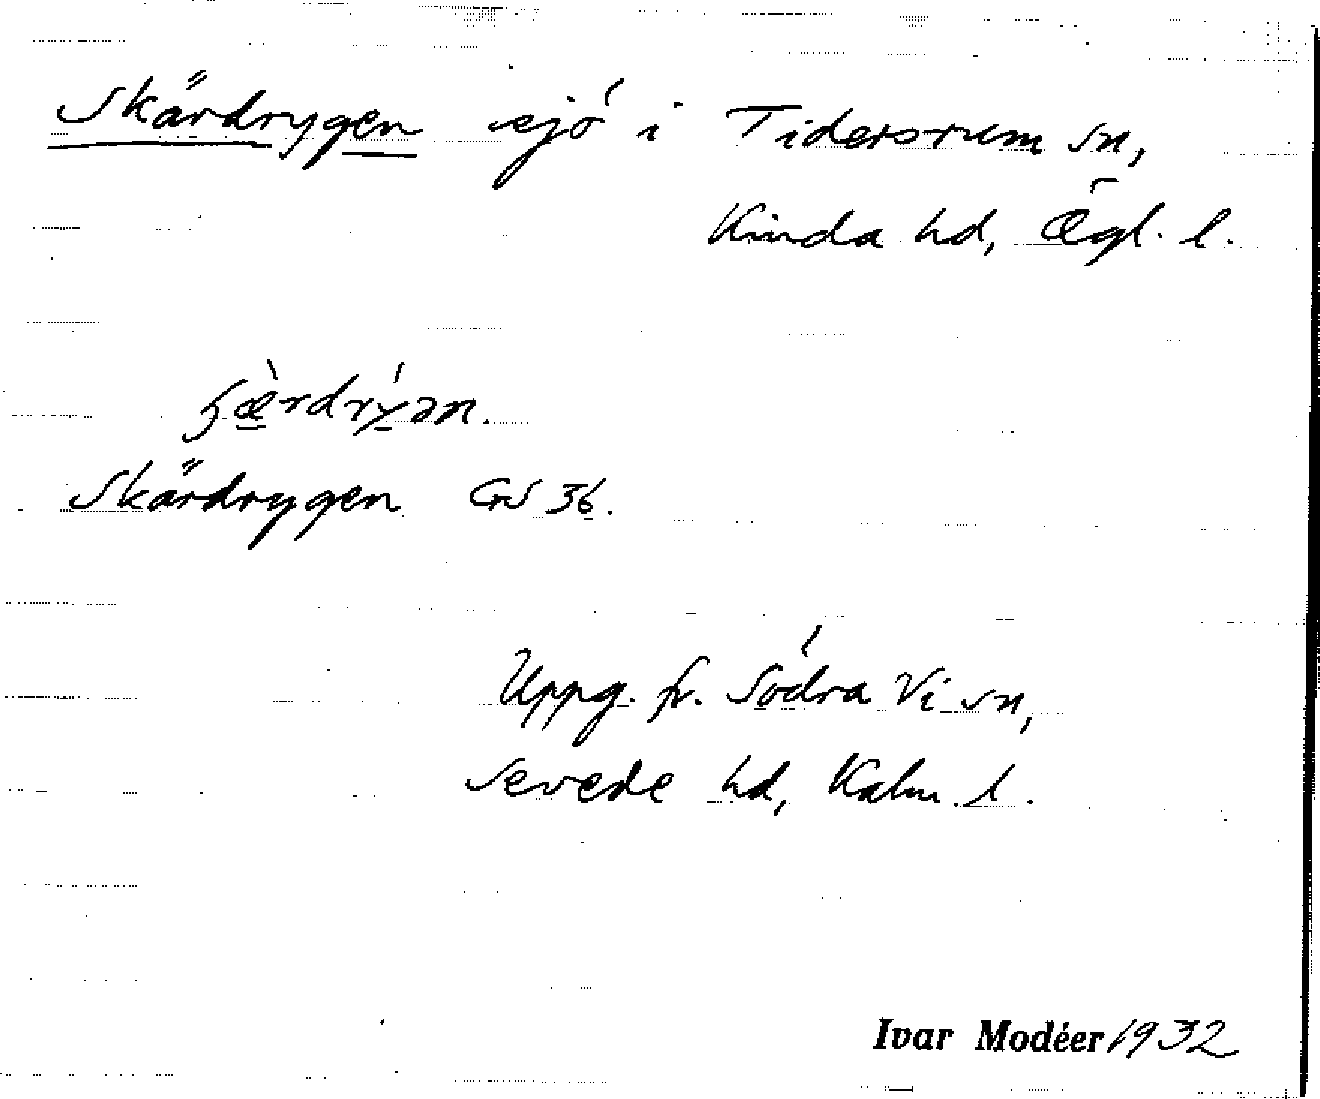 Skärdrygen sjö i Tidersrum sn,
Kinda hd, Ögl. l.
Skärdrygen GS 36.
Uppg. fr. Södra Vi sn,
Sevede hd, Kalm. l.
Ivar Modéer 1932